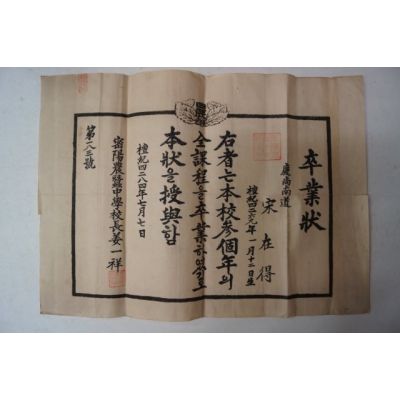 卒業狀
慶尚南道
宋在得
檀紀四二六九年一月十二日生
右者는本校參個年의
全課程을卒業하였으므로
本狀을授與함
檀紀四二八四年七月七日
密陽農蠶中學校長姜一祥
第一八三號